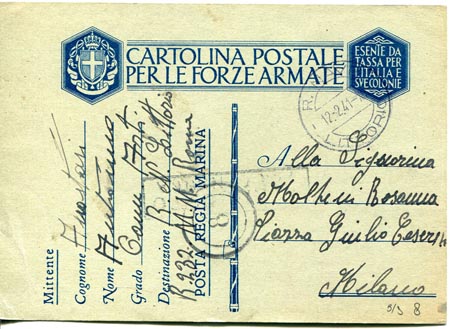 CARTOLINA POSTALE
PER LE FORZE ARMATE
ESENTE DA
TASSA PER
L'ITALIA E
SVE COLONIE
12.2.41
Mittente
Cognome
Nome
Grado Cann.
Destinazione R. N. Littorio
R.232 M.M. Roma
POSTA REGIA MARINA
8
Alla Signorina
Molteni Rosanna
Piazza Giulio Cesare
Milano
8